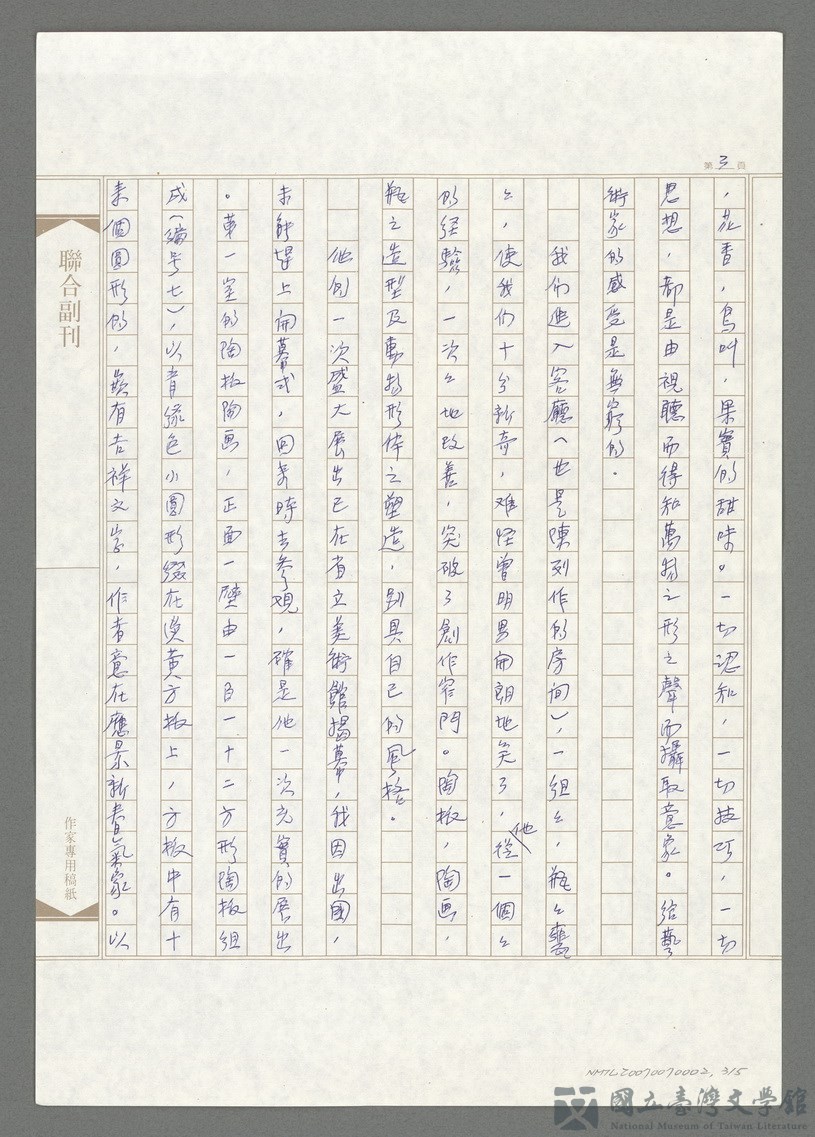 第3頁
，花香，鳥叫，果實的甜味。一切認知，一切技巧，一切
思想，都是由視聽而得知萬物之形之聲而攝取意象。給藝
術家的感受是無窮的。
我们進入客廳（也是陳列作的房间），一組々，瓶々甕
々，使我们十分新奇，难怪曾明男向朗地笑了，他從一個々
的経驗，一次々地改善，突破了創作窄門。陶板，陶画，
瓶之造型及動物形体之塑造，別具自己的風格。
他的一次盛大展出已在省立美術館揭幕，我因出國，
未能趕上開幕式，回來時去參观，確是他一次充實的展出
。第一室的陶板陶画，正面一壁由一百一十二方形陶板組
成（編号七），以青綠色小圓形綴在淡黄方板上，方板中有十
來個圓形的，嵌有吉祥文字，作者意在應景新春氣象。以
聯合副刊
作家專用稿紙
NMTL20070070002, 3/5
國立臺灣文學館
National Museum of Taiwan Literature